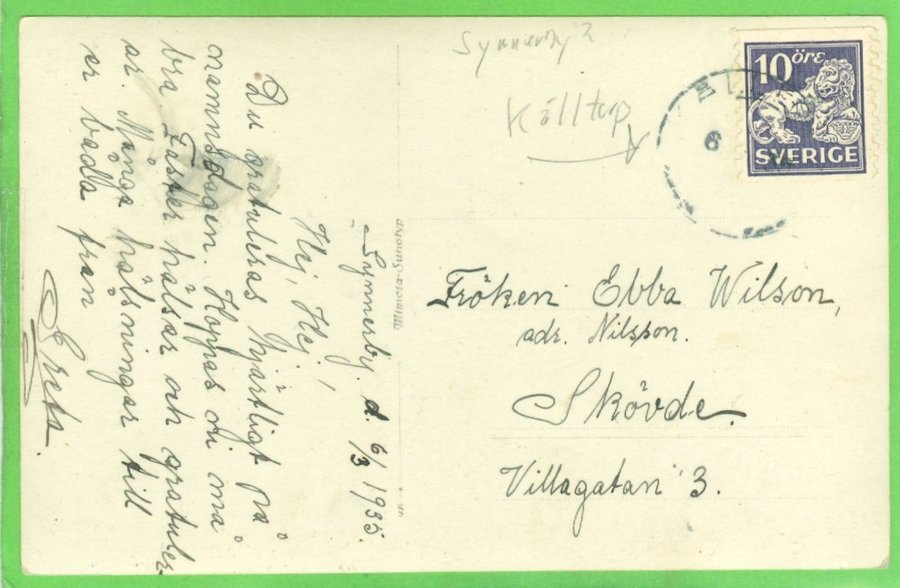 Synnerby 2
Källtorp
10 ÖRE
SVERIGE
6
Synnerby. d. 6/3 1935.
Hej, Hej!
Du gratuleras hjärtligt på
namnsdagen. Hoppas du må
bra Faster hälsar och gratuler-
ar. Många hälsningar till
er båda från
Greta.
Fröken Ebba Wilson,
adr. Nilsson.
Skövde.
Villagatan 3.